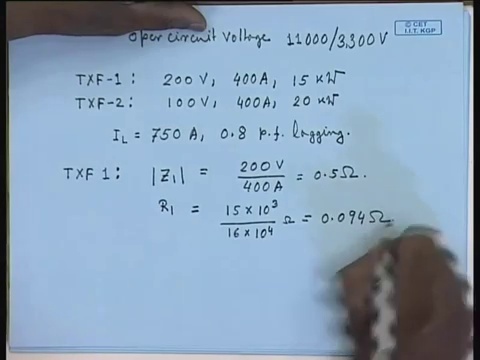 Open circuit Voltage 11000/3,300V
© CET
I.I.T. KGP
TXF-1: 200 V, 400A, 15 KW
TXF-2: 100 V, 400A, 20 KW
I_L = 750 A, 0.8 p.f. lagging.
TXF 1: |Z₁| = 200 V / 400 A = 0.5Ω.
R₁ = 15 × 10³ / 16 × 10⁴ Ω = 0.094Ω.